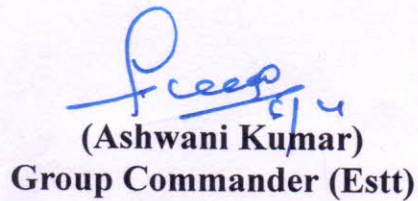 6/4
(Ashwani Kumar)
Group Commander (Estt)